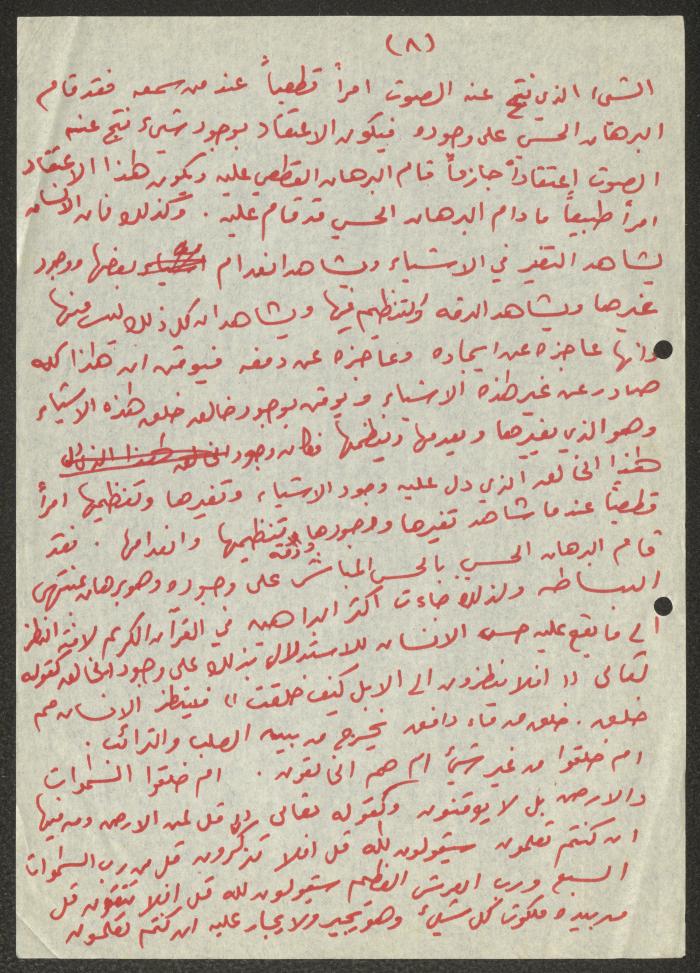 (٨)
الشيء الذي نتج عنه الصوت امراً قطعياً عند من سمعه فقد قام
البرهان الحسي على وجوده فيكون الاعتقاد بوجود شيء نتج عنه
الصوت اعتقاداً جازماً قام البرهان القطعي عليه ويكون هذا الاعتقاد
امراً طبيعياً ما دام البرهان الحسي قد قام عليه . وكذلك فان الانسان
يشاهد التغير في الاشياء ويشاهد انعدام بعضها ووجود
غيرها ويشاهد الدقه والتنظيم فيها ويشاهد ان كل ذلك ليس منها
وانها عاجزه عن ايجاده وعاجزه عن دفعه فيوقن ان هذا كله
صادر عن غير هذه الاشياء ويوقن بوجود خالق خلق هذه الاشياء
وهو الذي يغيرها ويعدمها وينظمها فكان وجود الخالق هذا الذي دل
هذا الخالق الذي دل عليه وجود الاشياء وتغيرها وتنظيمها امراً
قطعياً عند ما شاهد تغيرها ووجودها ودقة تنظيمها وانعدامها . فقد
قام البرهان الحسي بالحس المباشر على وجوده وهو برهان بمنتهى
البساطه ولذلك جاءت اكثر براهين في القرآن الكريم لافتة النظر
الى ما يقع عليه حس الانسان للاستدلال بذلك على وجود الخالق كقوله
تعالى (( افلا ينظرون الى الابل كيف خلقت )) فلينظر الانسان مم
خلق . خلق من ماء دافق يخرج من بين الصلب والترائب .
ام خلقوا من غير شيء ام هم الخالقون . ام خلقوا السموات
والارض بل لا يوقنون وكقوله تعالى قل لمن الارض ومن فيها
ان كنتم تعلمون سيقولون لله قل افلا تذكرون قل من رب السموات
السبع ورب العرش العظيم سيقولون لله قل افلا تتقون قل
من بيده ملكوت كل شيء وهو يجير ولا يجار عليه ان كنتم تعلمون